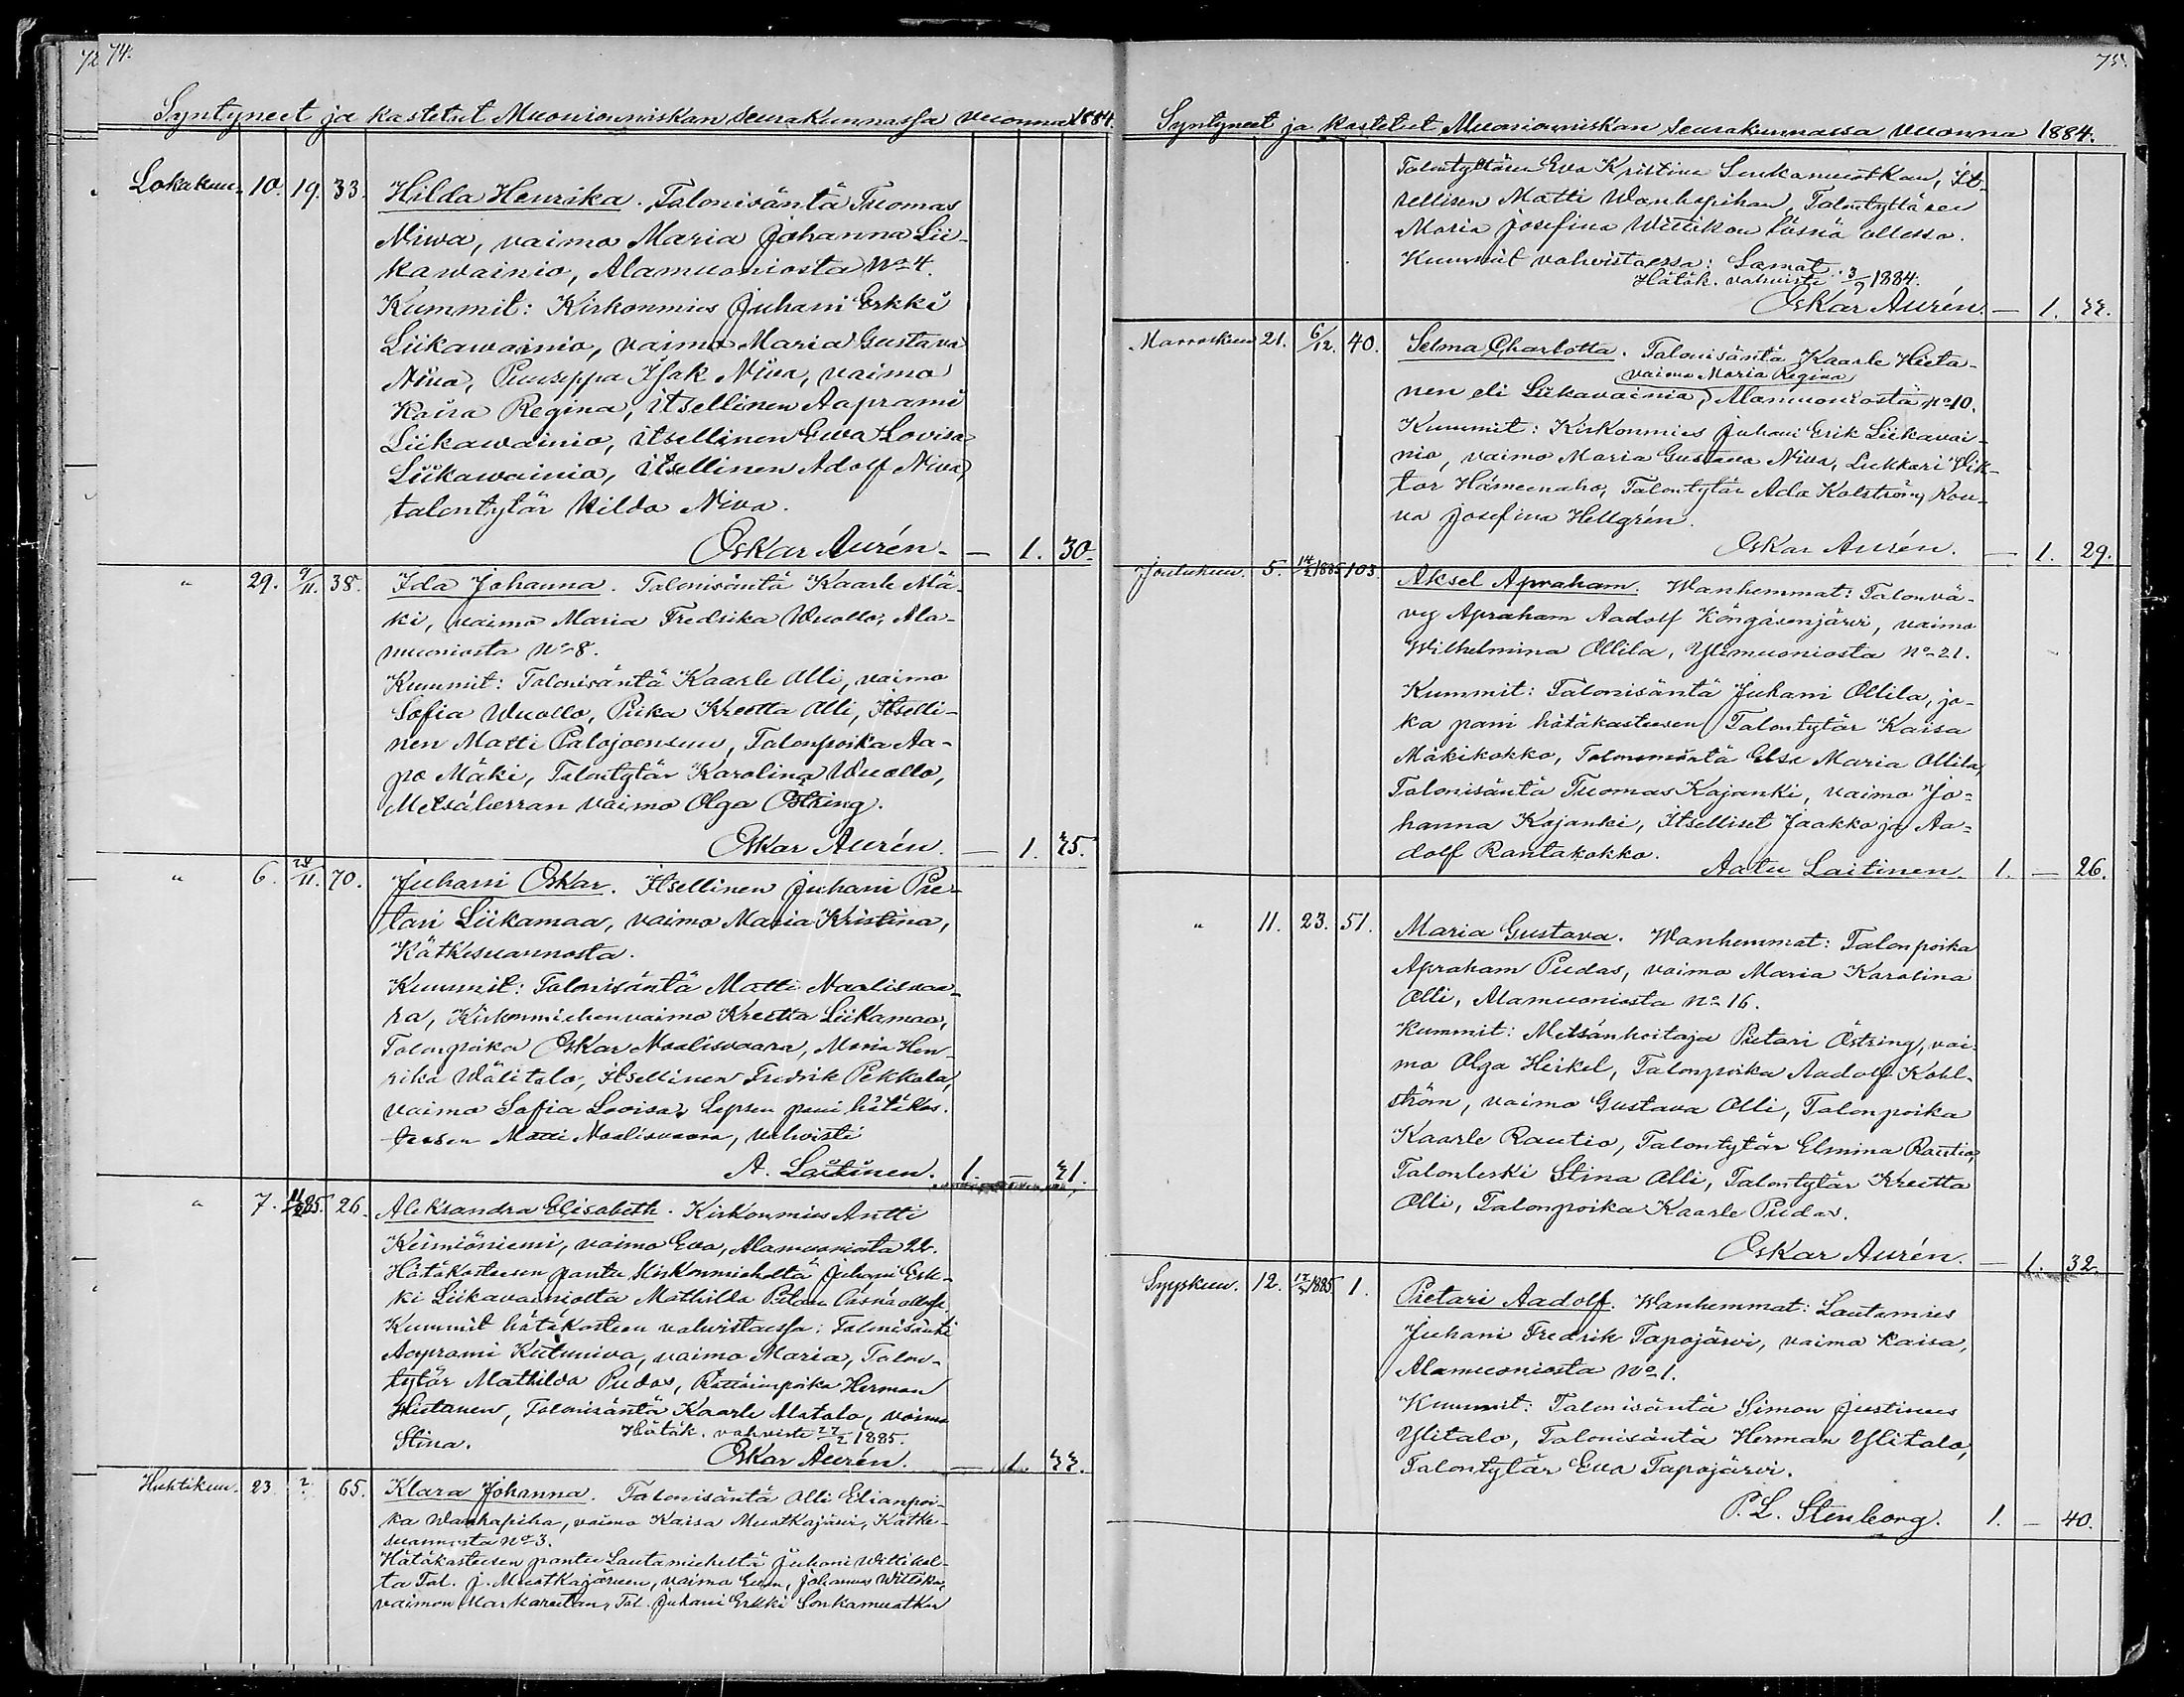 74.
Syntyneet ja kastetut Muonionniskan seurakunnassa vuonna 1884.
Lokakuu. 10. 19. 33. Hilda Henrika. Talonisäntä Tuomas
Niwa, vaimo Maria Johanna Lii-
kawainio, Alamuoniosta No 4.
Kummit: Kirkonmies Juhani Erkki
Liikawainio, vaimo Maria Gustava
Niva, Puuseppa Isak Niva, vaimo
Kaisa Regina, itsellinen Aaprami
Liikawainio, itsellinen Ewa Lovisa
Liikawainio, itsellinen Adolf Niva,
talontytär Hilda Niva.
Oskar Aurén. — 1. 30.
" 29. 9/11. 38. Ida Johanna. Talonisäntä Kaarle Mä-
ki, vaimo Maria Fredrika Wuollo, Ala-
muoniosta No 8.
Kummit: Talonisäntä Kaarle Olli, vaimo
Sofia Wuollo, Piika Kreetta Olli, Itselli-
nen Matti Palojoensuu, Talonpoika Aa-
po Mäki, Talontytär Karolina Wuollo,
Metsäherran vaimo Olga Östring.
Oskar Aurén. — 1. 25.
" 6. 11. 70. Juhani Oskar. Itsellinen Juhani Pie-
tari Liikamaa, vaimo Maria Kristina,
Kätkesuannosta.
Kummit: Talonisäntä Matti Maalisvaa-
ra, Kirkonmiehen vaimo Kreetta Liikamaa,
Talonpoika Oskar Maalisvaara, Maria Hen-
rika Wälitalo, itsellinen Fredrik Pekkala,
vaimo Sofia Lovisa, Lapsen pani hätäkas-
teesen Matti Maalisvaara, vahvisti
A. Laitinen. 1. — 21.
" 7. 85. 26. Aleksandra Elisabeth. Kirkonmies Antti
Keimiöniemi, vaimo Eva, Alamuoniosta 22.
Hätäkasteesen pantu Kirkonmieheltä Juhani Erk-
ki Liikavainiolta Mathilda läsnä ollessa.
Kummit hätäkasteen vahvistaessa: Talonisäntä
Aaprami Kutuniva, vaimo Maria, Talon-
tytär Mathilda Pudas, Herman
Hietanen, Talonisäntä Kaarle Alatalo, vaimo
Stina. Hätäk. vahvisti 27/2 1885.
Oskar Aurén. — 1. 33.
Huhtikuu. 23. ? 65. Klara Johanna. Talonisäntä Olli Elianpoi-
ka Wanhapiha, vaimo Kaisa Muotkajärvi, Kätke-
suannosta No 3.
Hätäkasteesen pantu Lautamieheltä Juhani Wittikal-
ta Tal. j. Muotkajärven, vaimo Evan, Johannes Wittika,
vaimon Markareetan, Tal. Juhani Erkki Sonkamuotkan
75.
Syntyneet ja kastetut Muonionniskan seurakunnassa vuonna 1884.
Talontyttären Eva Kristina Sonkamuotkan, It-
sellisen Matti Wanhapihan, Talontyttären
Maria Josefina Wittikan läsnä ollessa.
Kummit vahvistaessa: Samat.
Hätäk. vahvisti 3/9 1884.
Oskar Aurén. — 1. 33.
Marraskuu 21. 6/12. 40. Selma Charlotta. Talonisäntä Kaarle Hieta-
vaimo Maria Regina
nen eli Liikavainio, Alamuoniosta No 10.
Kummit: Kirkonmies Juhani Erik Liikavai-
nio, vaimo Maria Gustava Niva, Lukkari Vik-
tor Hämeenaho, Talontytär Ada Kolström, Rou-
va Josefina Hellgrén.
Oskar Aurén. — 1. 29.
Joulukuu. 5. 1885 103. Aksel Apraham. Wanhemmat: Talonvä-
vy Apraham Aadolf Köngäsenjärvi, vaimo
Wilhelmina Ollila, Ylimuoniosta No 21.
Kummit: Talonisäntä Juhani Ollila, jo-
ka pani hätäkasteesen, Talontytär Kaisa
Mäkikokko, Talonemäntä Elsa Maria Ollila,
Talonisäntä Tuomas Kajanki, vaimo Jo-
hanna Kajanki, Itselliset Jaakko ja Aa-
dolf Rantakokko.
Aatu Laitinen. 1. — 26.
" 11. 23. 51. Maria Gustava. Wanhemmat: Talonpoika
Apraham Pudas, vaimo Maria Karolina
Olli, Alamuoniosta No 16.
Kummit: Metsänhoitaja Pietari Östring, vai-
mo Olga Heikel, Talonpoika Aadolf Kohl-
ström, vaimo Gustava Olli, Talonpoika
Kaarle Rautio, Talontytär Elmina Rautio,
Talonleski Stina Olli, Talontytär Kreetta
Olli, Talonpoika Kaarle Pudas.
Oskar Aurén. — 1. 32.
Syyskuu. 12. 1885 1. Pietari Aadolf. Wanhemmat: Lautamies
Juhani Fredrik Tapojärvi, vaimo Kaisa,
Alamuoniosta No 1.
Kummit: Talonisäntä Simon Justinus
Ylitalo, Talonisäntä Herman Ylitalo,
Talontytär Eva Tapojärvi.
P. L. Stenborg. 1. — 40.